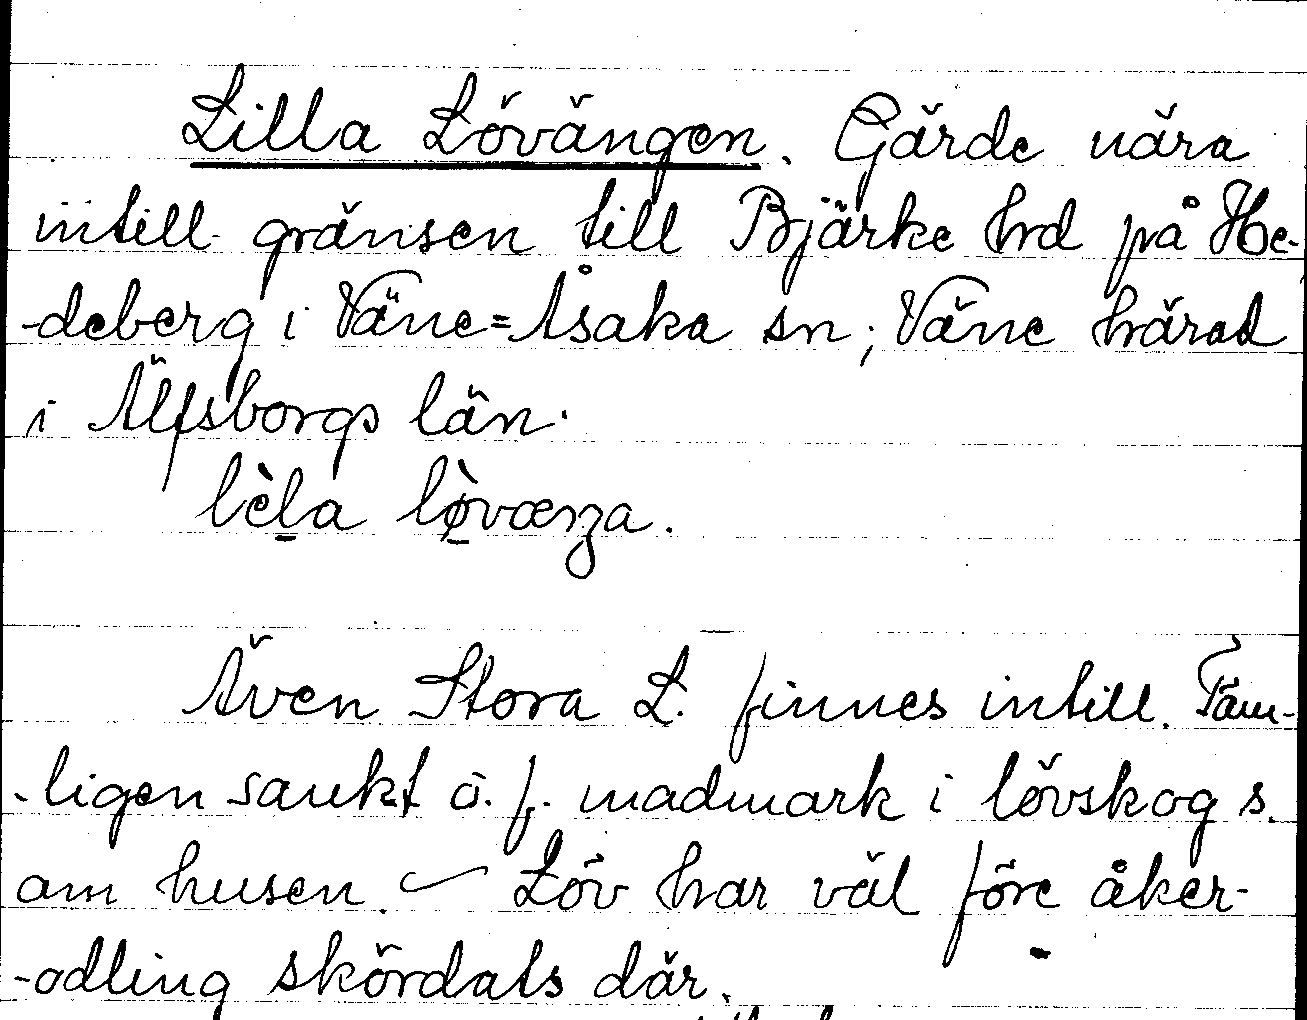 Lilla Lövängen. Gärde nära
intill gränsen till Bjärke hrd på He-
-deberg i Väne=Åsaka sn, Väne härad
i Älfsborgs län.
lὲl̠a lø̠̀væŋa.
Även Stora L. finnes intill. Täm-
-ligen sankt o. f. madmark i lövskog s.
om husen. — Löv har väl före åker-
-odling skördats där.